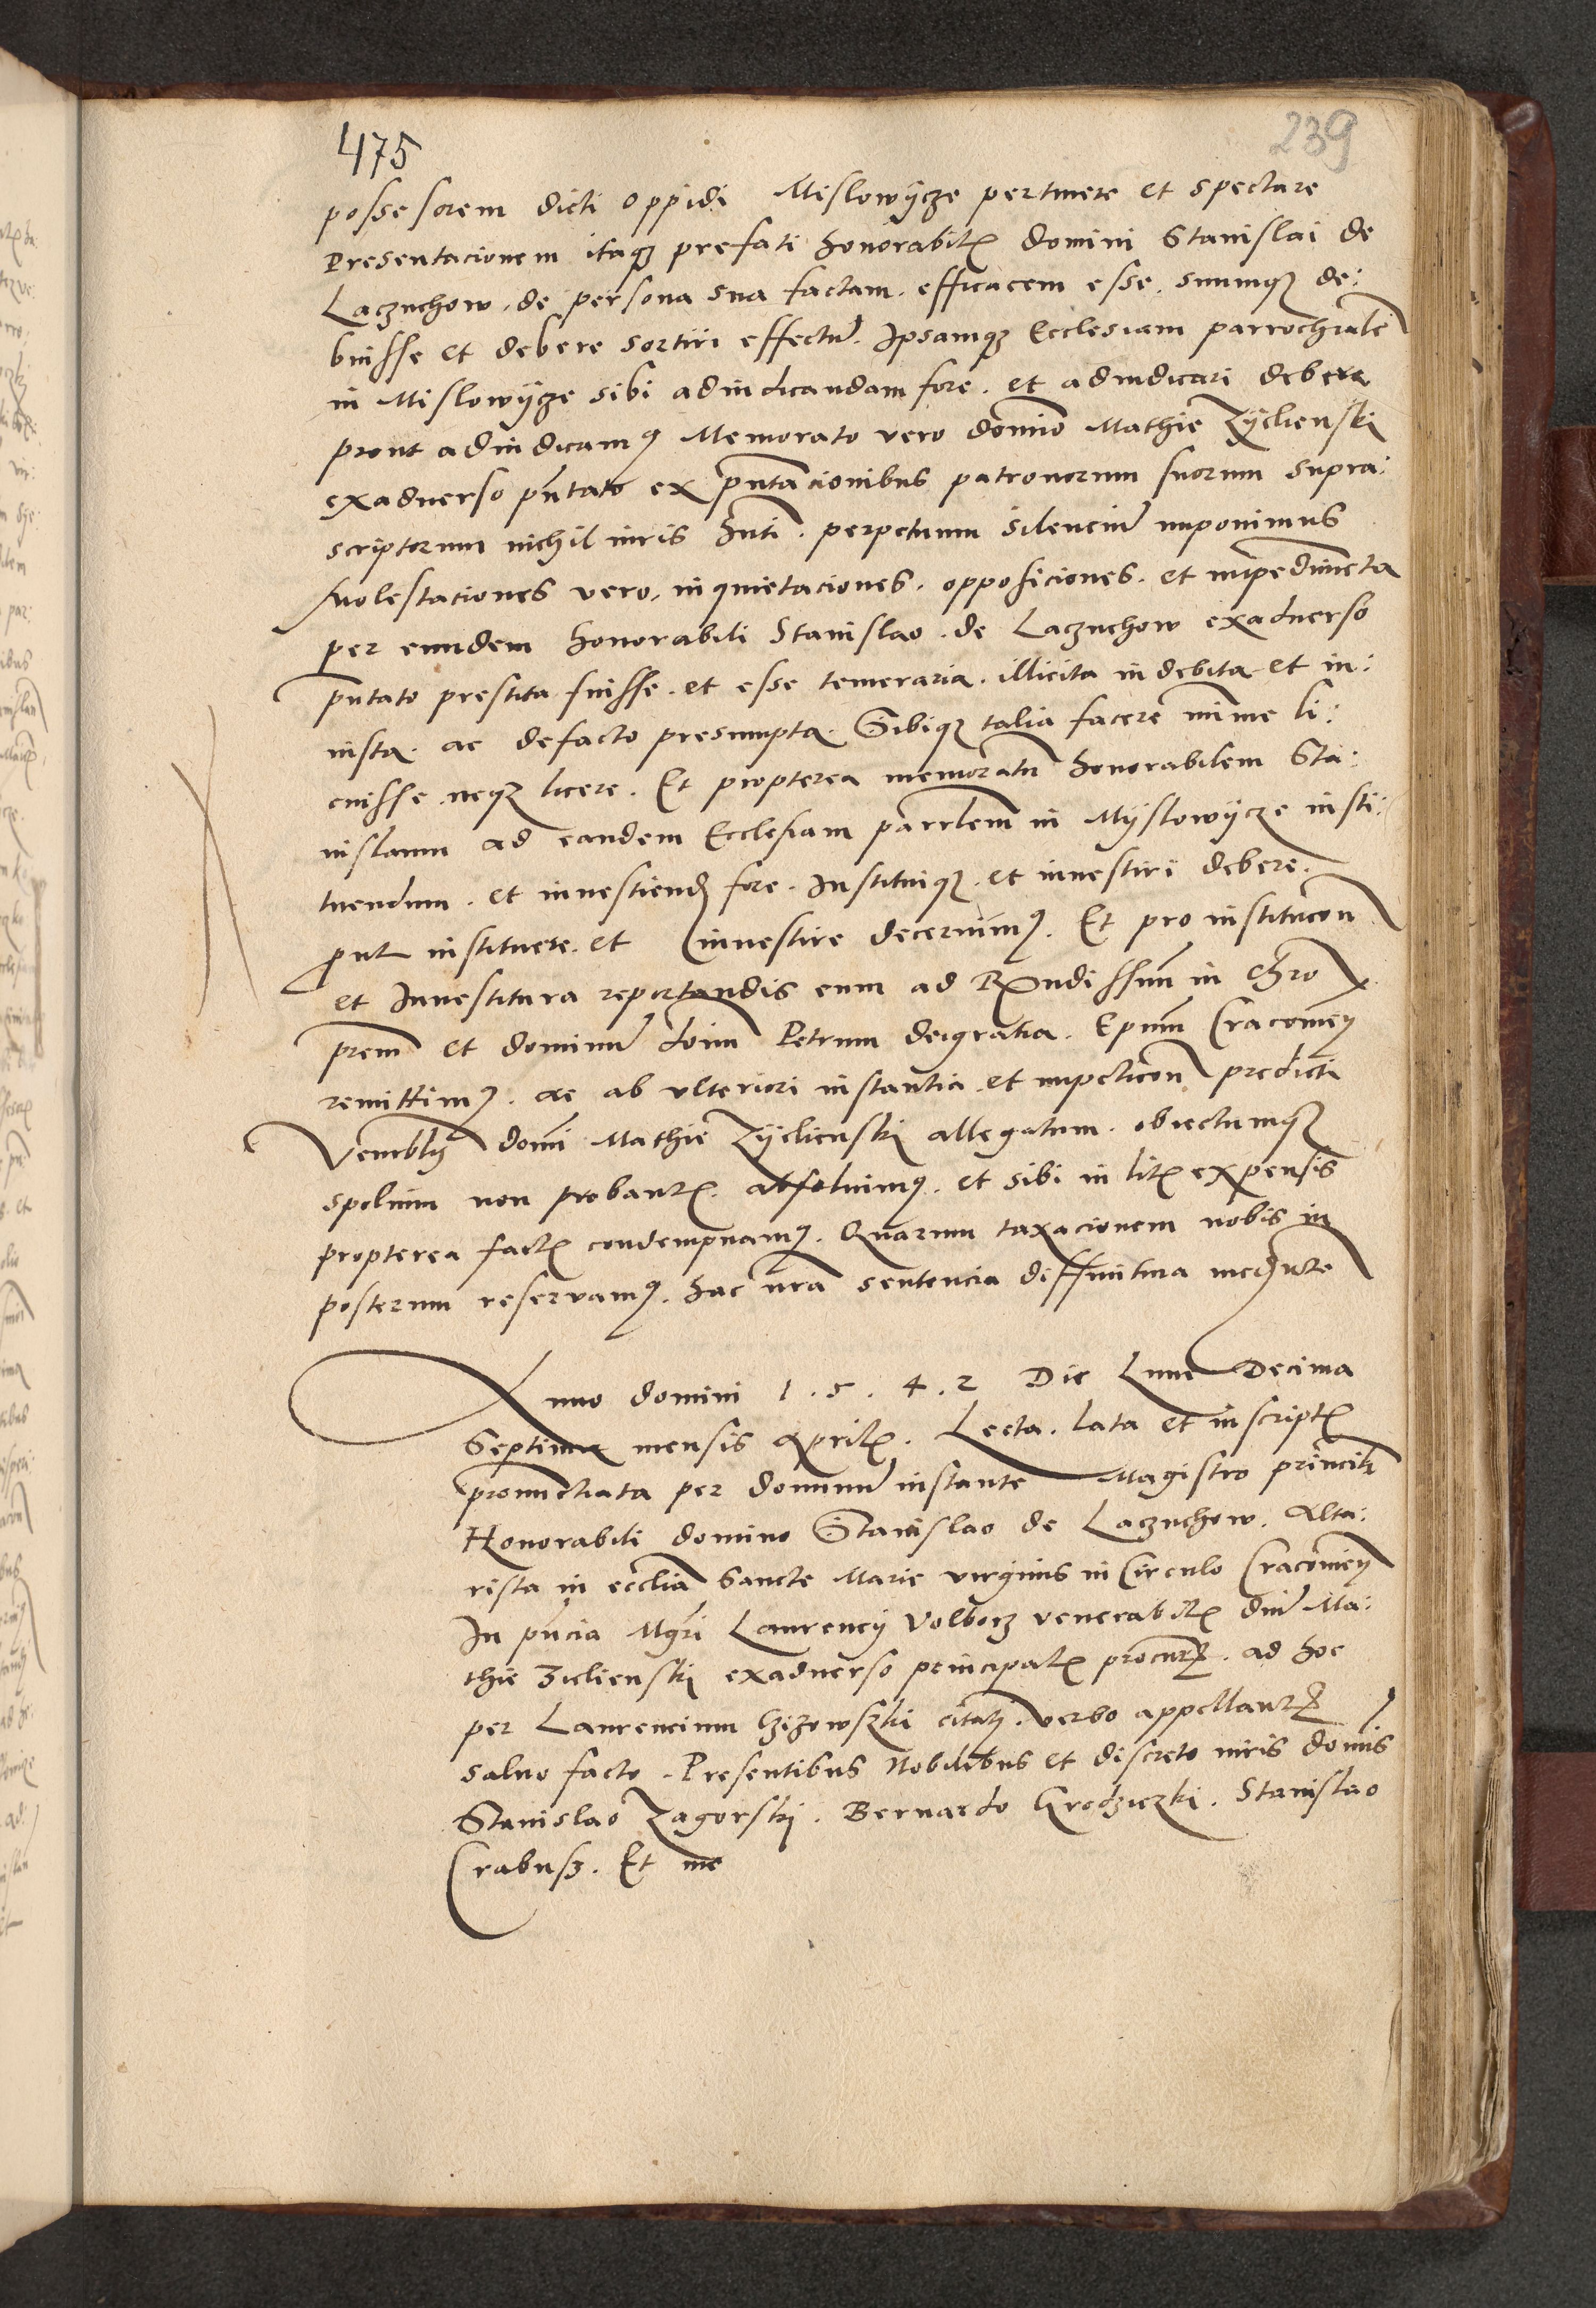 475
239
possessorem dicti oppidi Mislowÿcze pertinere et spectare
Presentacionem itaq₃ prefati honorabilꝭ domini Stanislai de
Laczuchow, de persona sua factam. efficacem esse. suumq₃ de:
buisse et debere sortiri effectū. Ipsamq₃ Ecclesiam parrochialē
in Mislowÿcze sibi adiudicandam fore. et adiudicari debere
prout adiudicamꝰ Memorato vero domino Mathie Zÿclienski
exaduerso pn̄tato ex pn̄tacionibus patronorum suorum supra:
scriptorum nichil iuris hn̄ti. perpetuum silenciū imponimus
Molestaciones vero, inquietaciones. opposiciones. et impedimēta
per eundem honorabili Stanislao. de Laczuchow exaduerso
pn̄tato prestita fuisse. et esse temeraria. illicita indebita et in:
iusta. ac defacto presumpta. Sibiq₃ talia facere minime li:
cuisse neq₃ licere. Et propterea memoratū honorabilem Sta:
nislaum ad eandem Ecclesiam parrlem̄ in Mÿslowÿcze insti:
tuendum. et inuestiendꝭ fore. Instituiq₃. et inuestiri debere.
put instituere. et inuestire decernimꝰ. Et pro institucon̄
et Inuestitura reportandis eum ad Rꝭndissimū in chr̄o
prem̄ et dominū dom̄ Petrum deigratia. Epum̄ Cracouieñ
remittimꝰ. ac ab vlteriori instantia et impeticon̄ predicti
Venerablꝭ domi̅ Mathie Zÿclienski allegatum. obiectumq₃
spolium non probantꝭ. absoluimꝰ. et sibi in litꝭ expensis
propterea factꝭ condempnamꝰ. Quarum taxacionem nobis in
posterum reseruamꝰ. hac nr̄a sentencia diffinitiua medi̅ate
Anno domini 1.5.4.2 Die Lune Decima
Septima mensis Aprilꝭ. Lecta. lata et inscriptꝭ
pronunctiata per dominū instante Magistro principli̅
Honorabili domino Stanislao de Laczuchow. Alta:
rista in ecclia̅ Sancte Marie virginis in Circulo Cracouieñ
In pn̄cia Mgr̄i Laurencÿ Volborz venerabilꝭ dni̅ Ma:
thie Zielienski exaduerso principalꝭ procurꝭ. ad hoc
per Laurencium citatꝭ. verbo appellantꝭ
saluo facto. Presentibus Nobilibus et discreto viris domi̅s
Stanislao Zagorskj. Bernardo Grodziczki. Stanislao
Crabusz. Et me